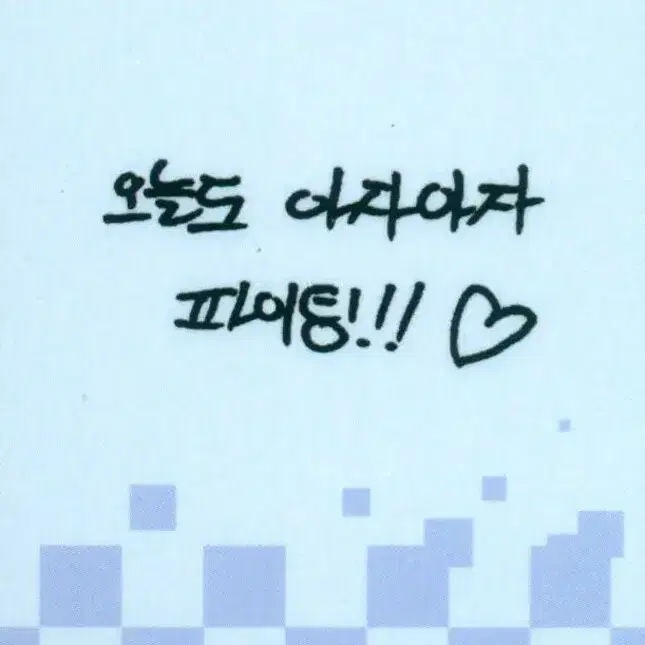 오늘도 아자아자
파이팅!!! ♡